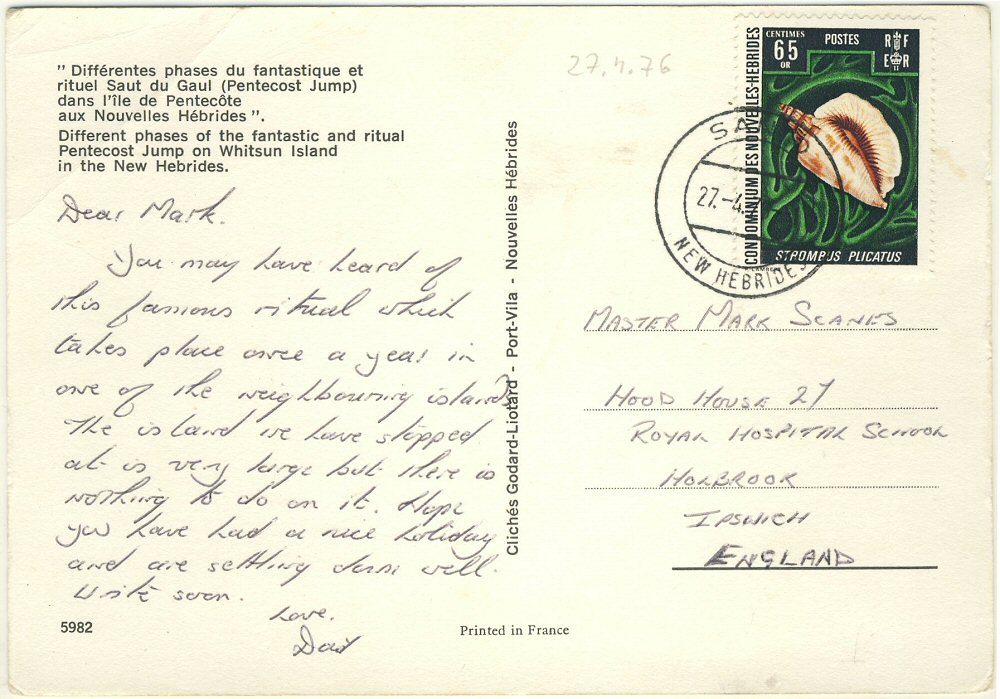 " Différentes phases du fantastique et
rituel Saut du Gaul (Pentecost Jump)
dans l'île de Pentecôte
aux Nouvelles Hébrides ".
Different phases of the fantastic and ritual
Pentecost Jump on Whitsun Island
in the New Hebrides.
Dear Mark.
You may have heard of
this famous ritual which
takes place once a year in
one of the neighbouring islands
The island we have stopped
at is very large but there is
nothing to do on it. Hope
you have had a nice holiday
and are settling down well.
Write soon.
Love.
Dad
5982
Clichés Godard-Liotard - Port-Vila - Nouvelles Hébrides
Printed in France
27.4.76
CONDOMINIUM DES NOUVELLES-HEBRIDES
CENTIMES
65
OR
POSTES
R F
E R
STROMBUS PLICATUS
27.-4.
NEW HEBRIDES
MASTER MARK SCANES
HOOD HOUSE 27
ROYAL HOSPITAL SCHOOL
HOLBROOK
IPSWICH
ENGLAND